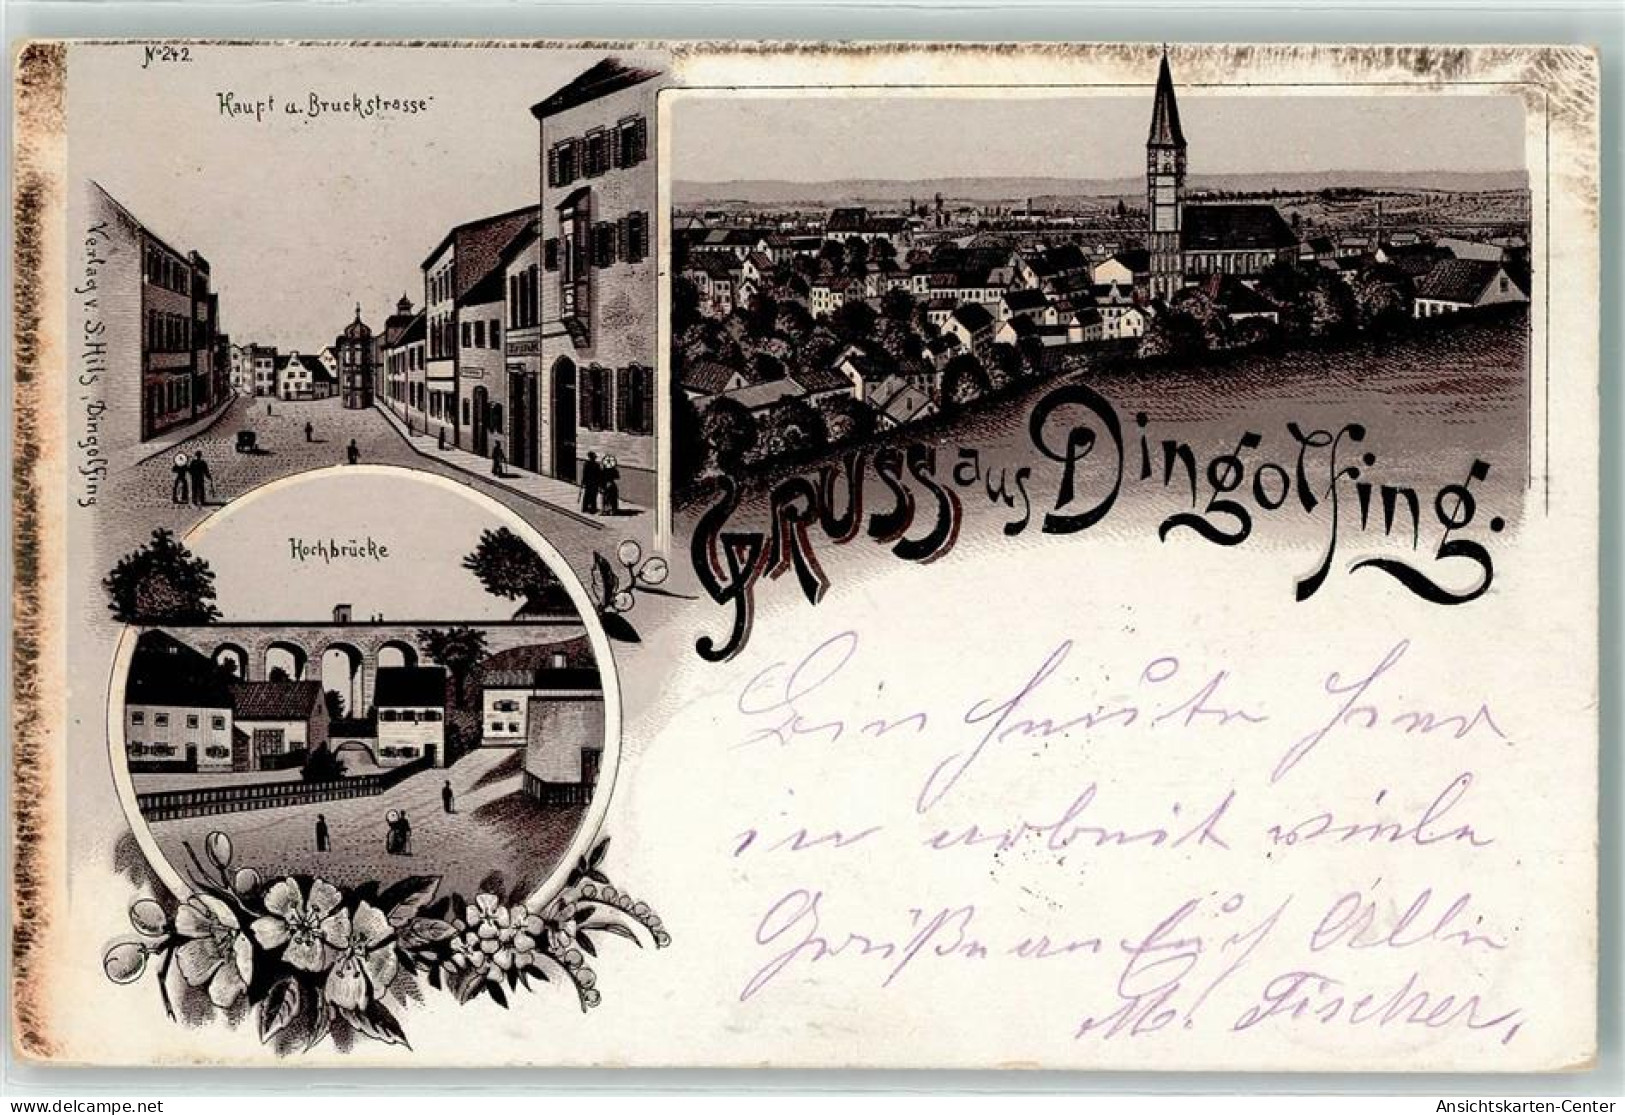 No 242.
Haupt u. Bruckstrasse
Verlag v. S. Hils, Dingolfing
Hochbrücke
Gruss aus Dingolfing.
Bin heute hier
in arbeit viele
Grüße an Euch Alle
M. Fischer,
delcampe.net
Ansichtskarten-Center